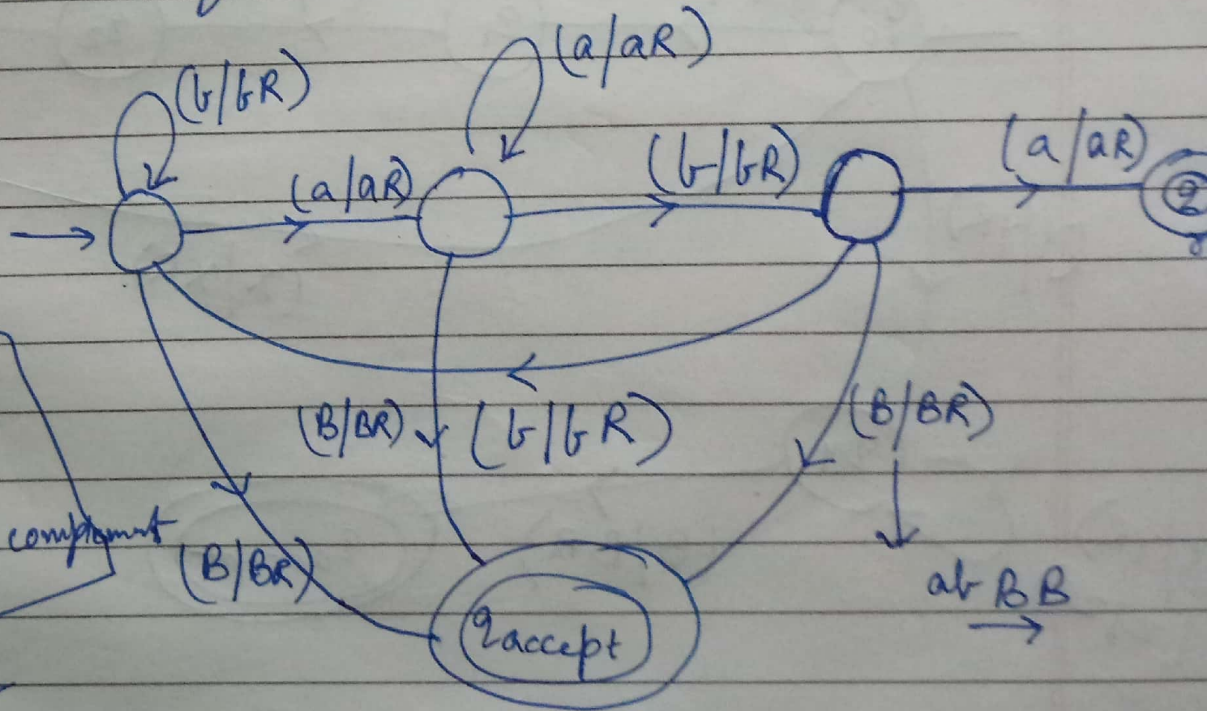 (b/bR) (a/aR)
(a/aR) (b/bR) (a/aR)
(B/BR) (b/bR) (B/BR)
complement (B/BR)
ab BB
qaccept